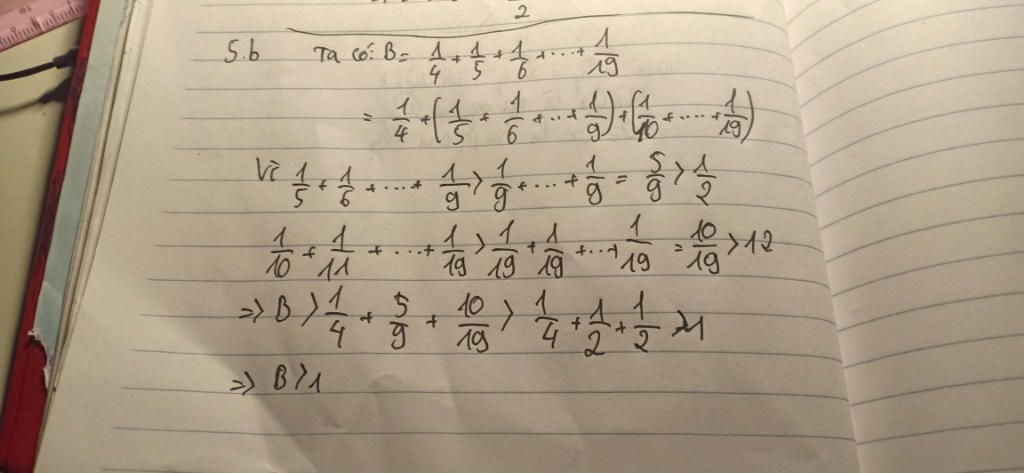 2
5.b Ta có: B = 1/4 + 1/5 + 1/6 + ... + 1/19
= 1/4 + (1/5 + 1/6 + ... + 1/9) + (1/10 + .... + 1/19)
Vì 1/5 + 1/6 + ... + 1/9 > 1/9 + ... + 1/9 = 5/9 > 1/2
1/10 + 1/11 + ... + 1/19 > 1/19 + 1/19 + ... + 1/19 = 10/19 > 12
=> B > 1/4 + 5/9 + 10/19 > 1/4 + 1/2 + 1/2 > 1
=> B > 1